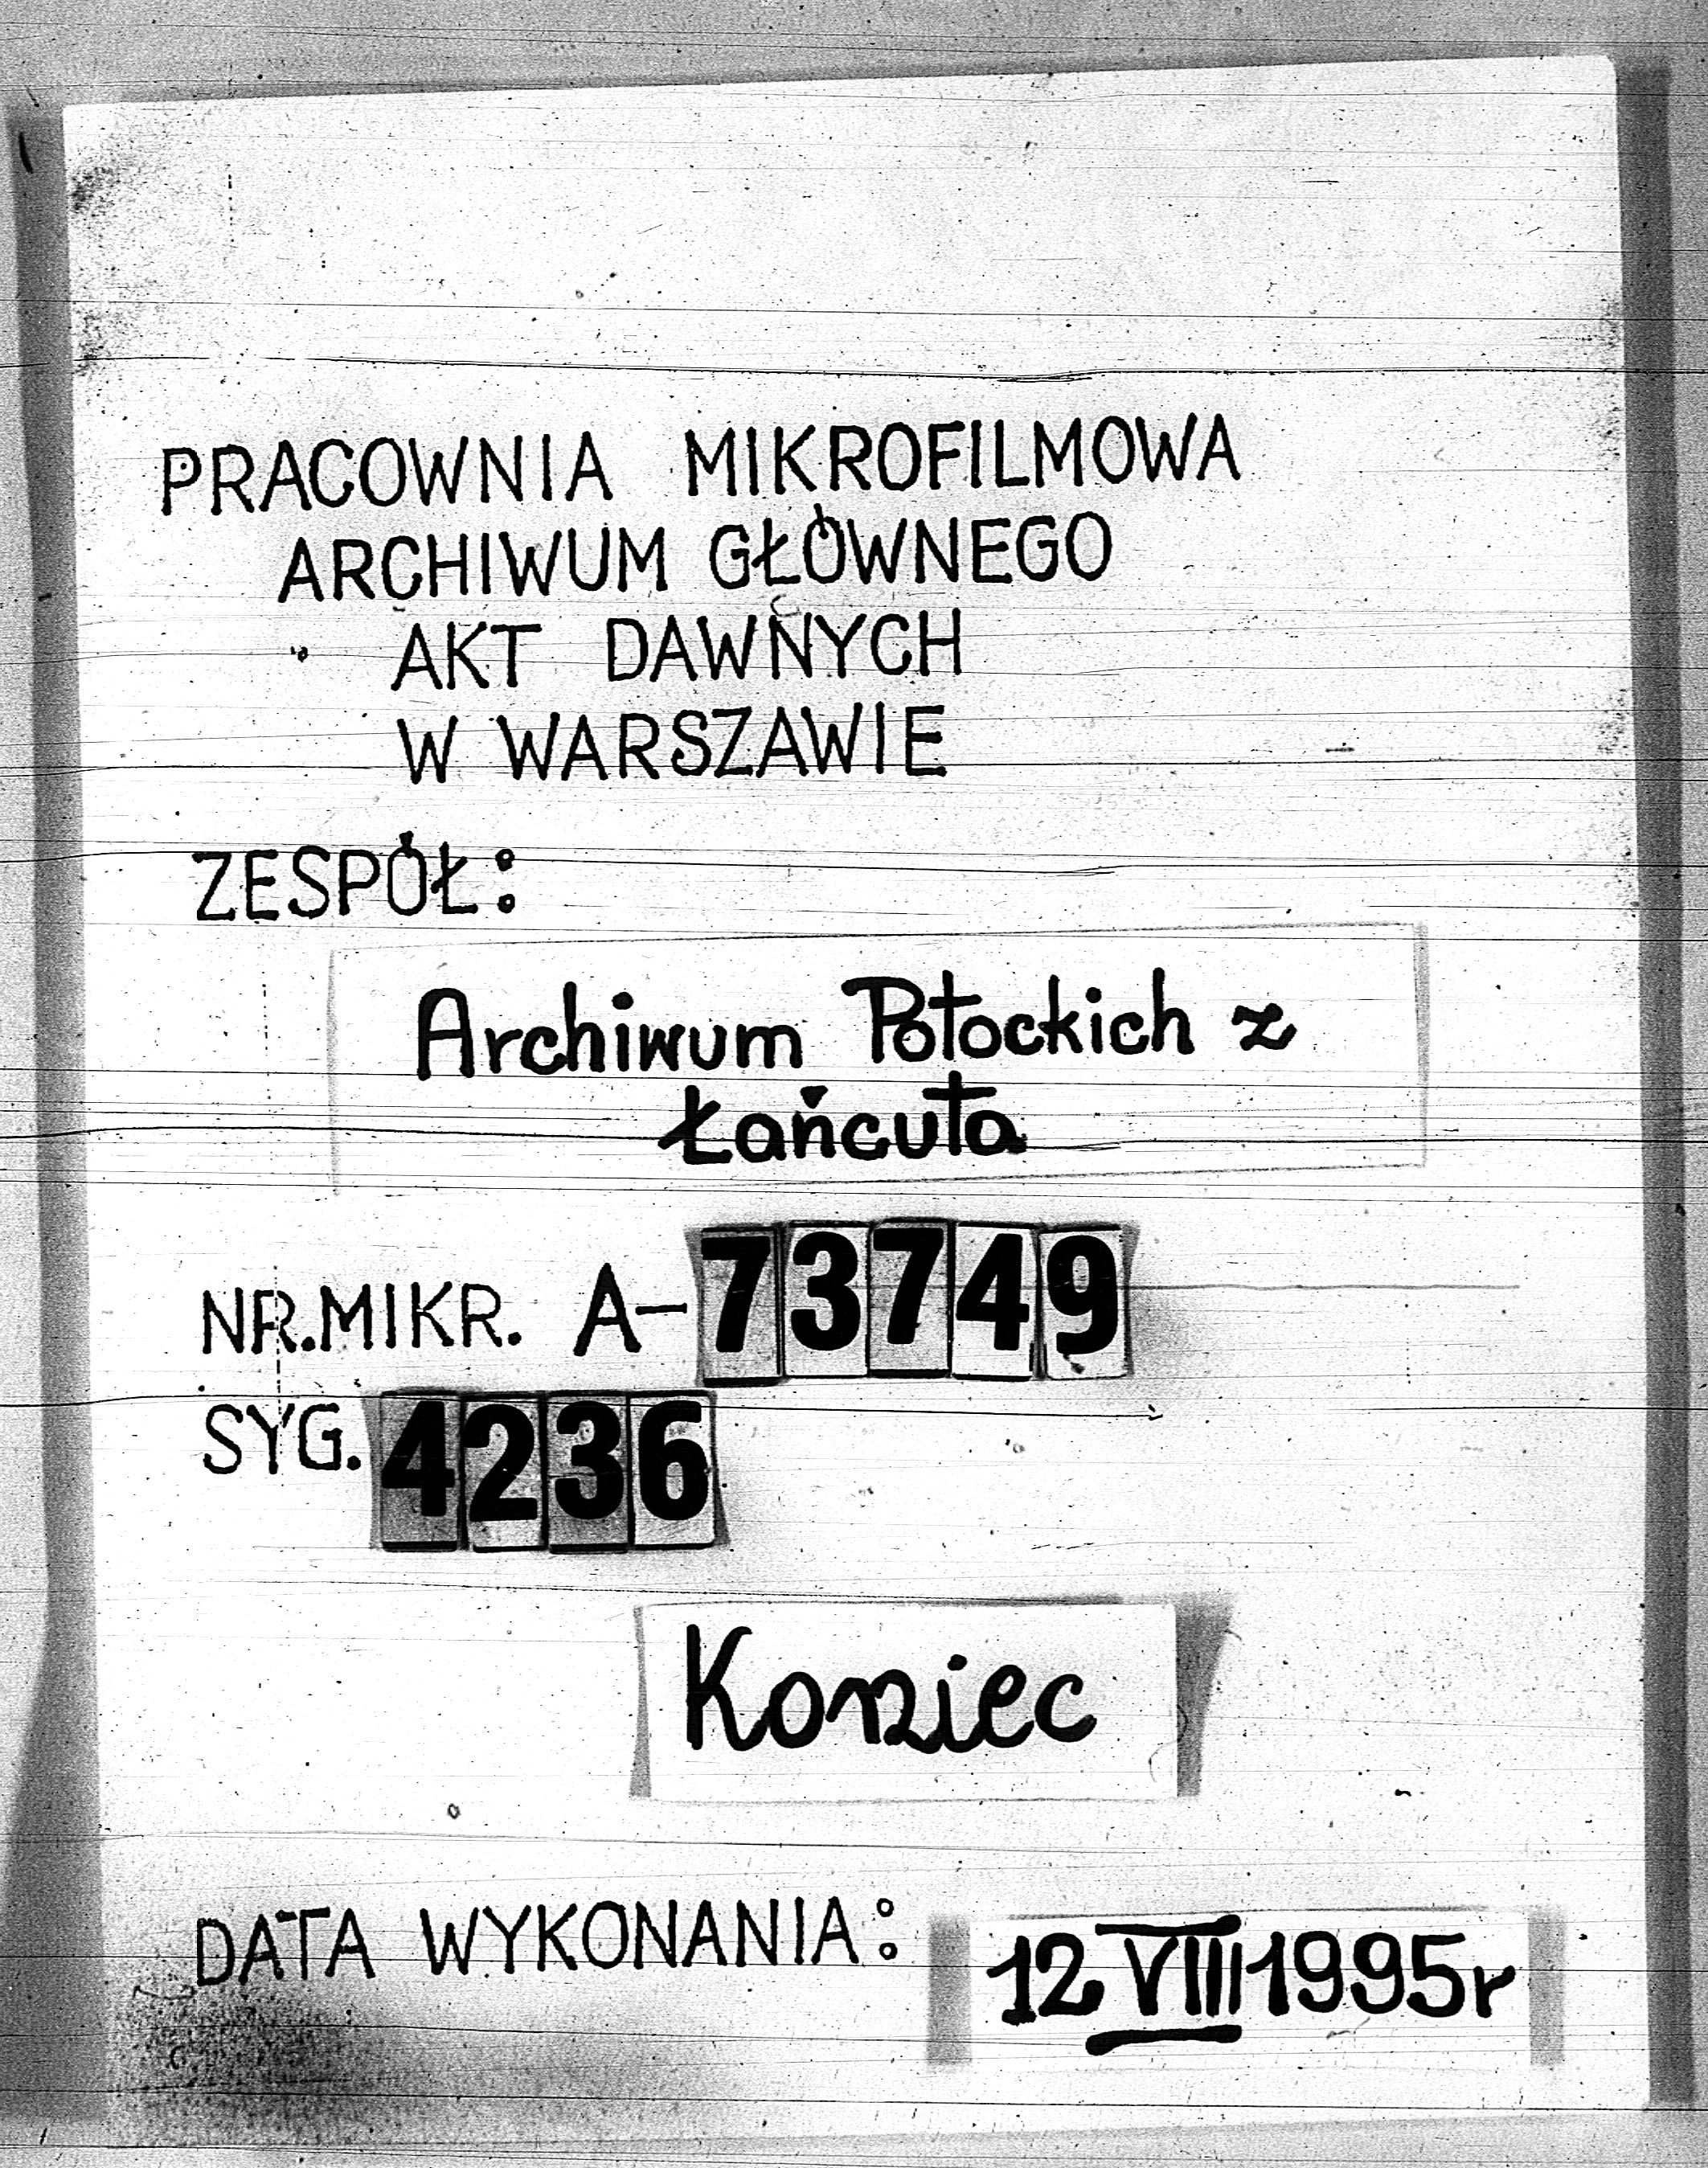 PRACOWNIA MIKROFILMOWA
ARCHIWUM GŁÓWNEGO
AKT DAWNYCH
W WARSZAWIE
ZESPÓŁ:
Archiwum Potockich z
Łańcuta
NR.MIKR. A-73749
SYG. 4236
Koniec
DATA WYKONANIA: 12 VIII 1995r